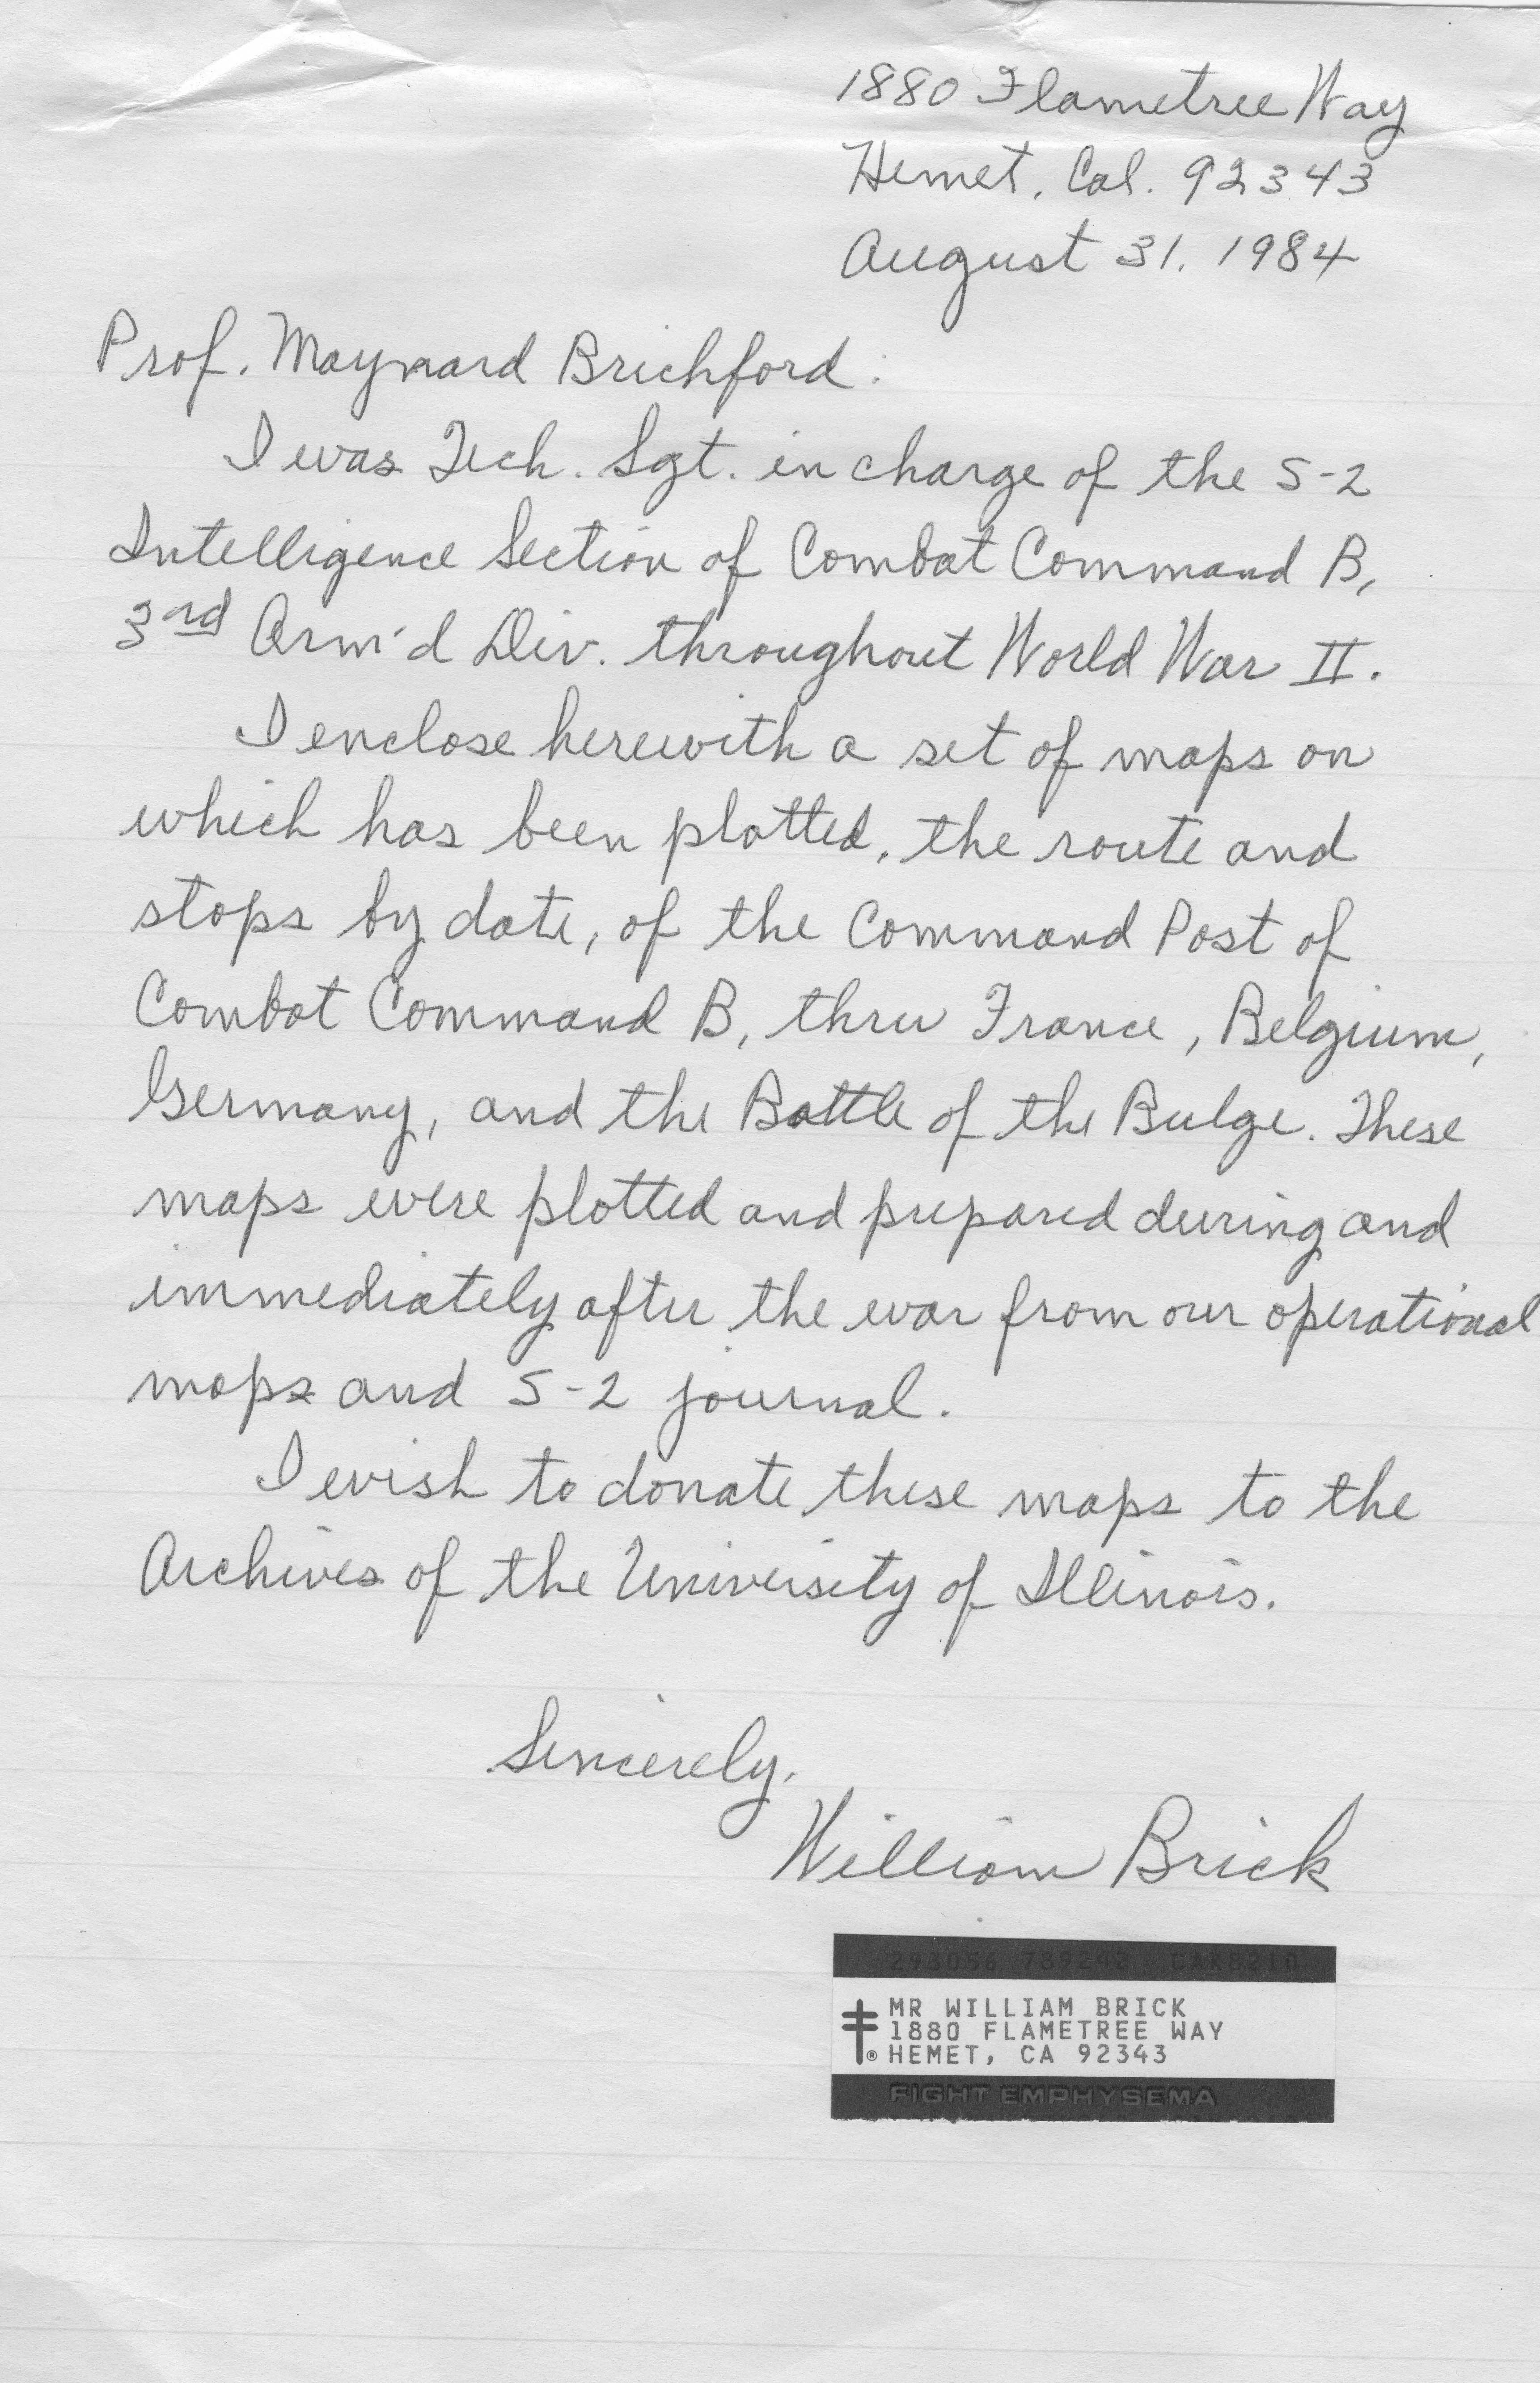 1880 Flametree Way
Hemet, Cal. 92343
August 31, 1984
Prof. Maynard Brichford:
I was Tech. Sgt. in charge of the S-2
Intelligence Section of Combat Command B,
3rd Arm'd Div. throughout World War II.
I enclose herewith a set of maps on
which has been plotted, the route and
stops by date, of the Command Post of
Combat Command B, thru France, Belgium,
Germany, and the Battle of the Bulge. These
maps were plotted and prepared during and
immediately after the war from our operational
maps and S-2 journal.
I wish to donate these maps to the
Archives of the University of Illinois.
Sincerely,
William Brick
293056 789242 CAK8210
MR WILLIAM BRICK
1880 FLAMETREE WAY
® HEMET, CA 92343
FIGHT EMPHYSEMA